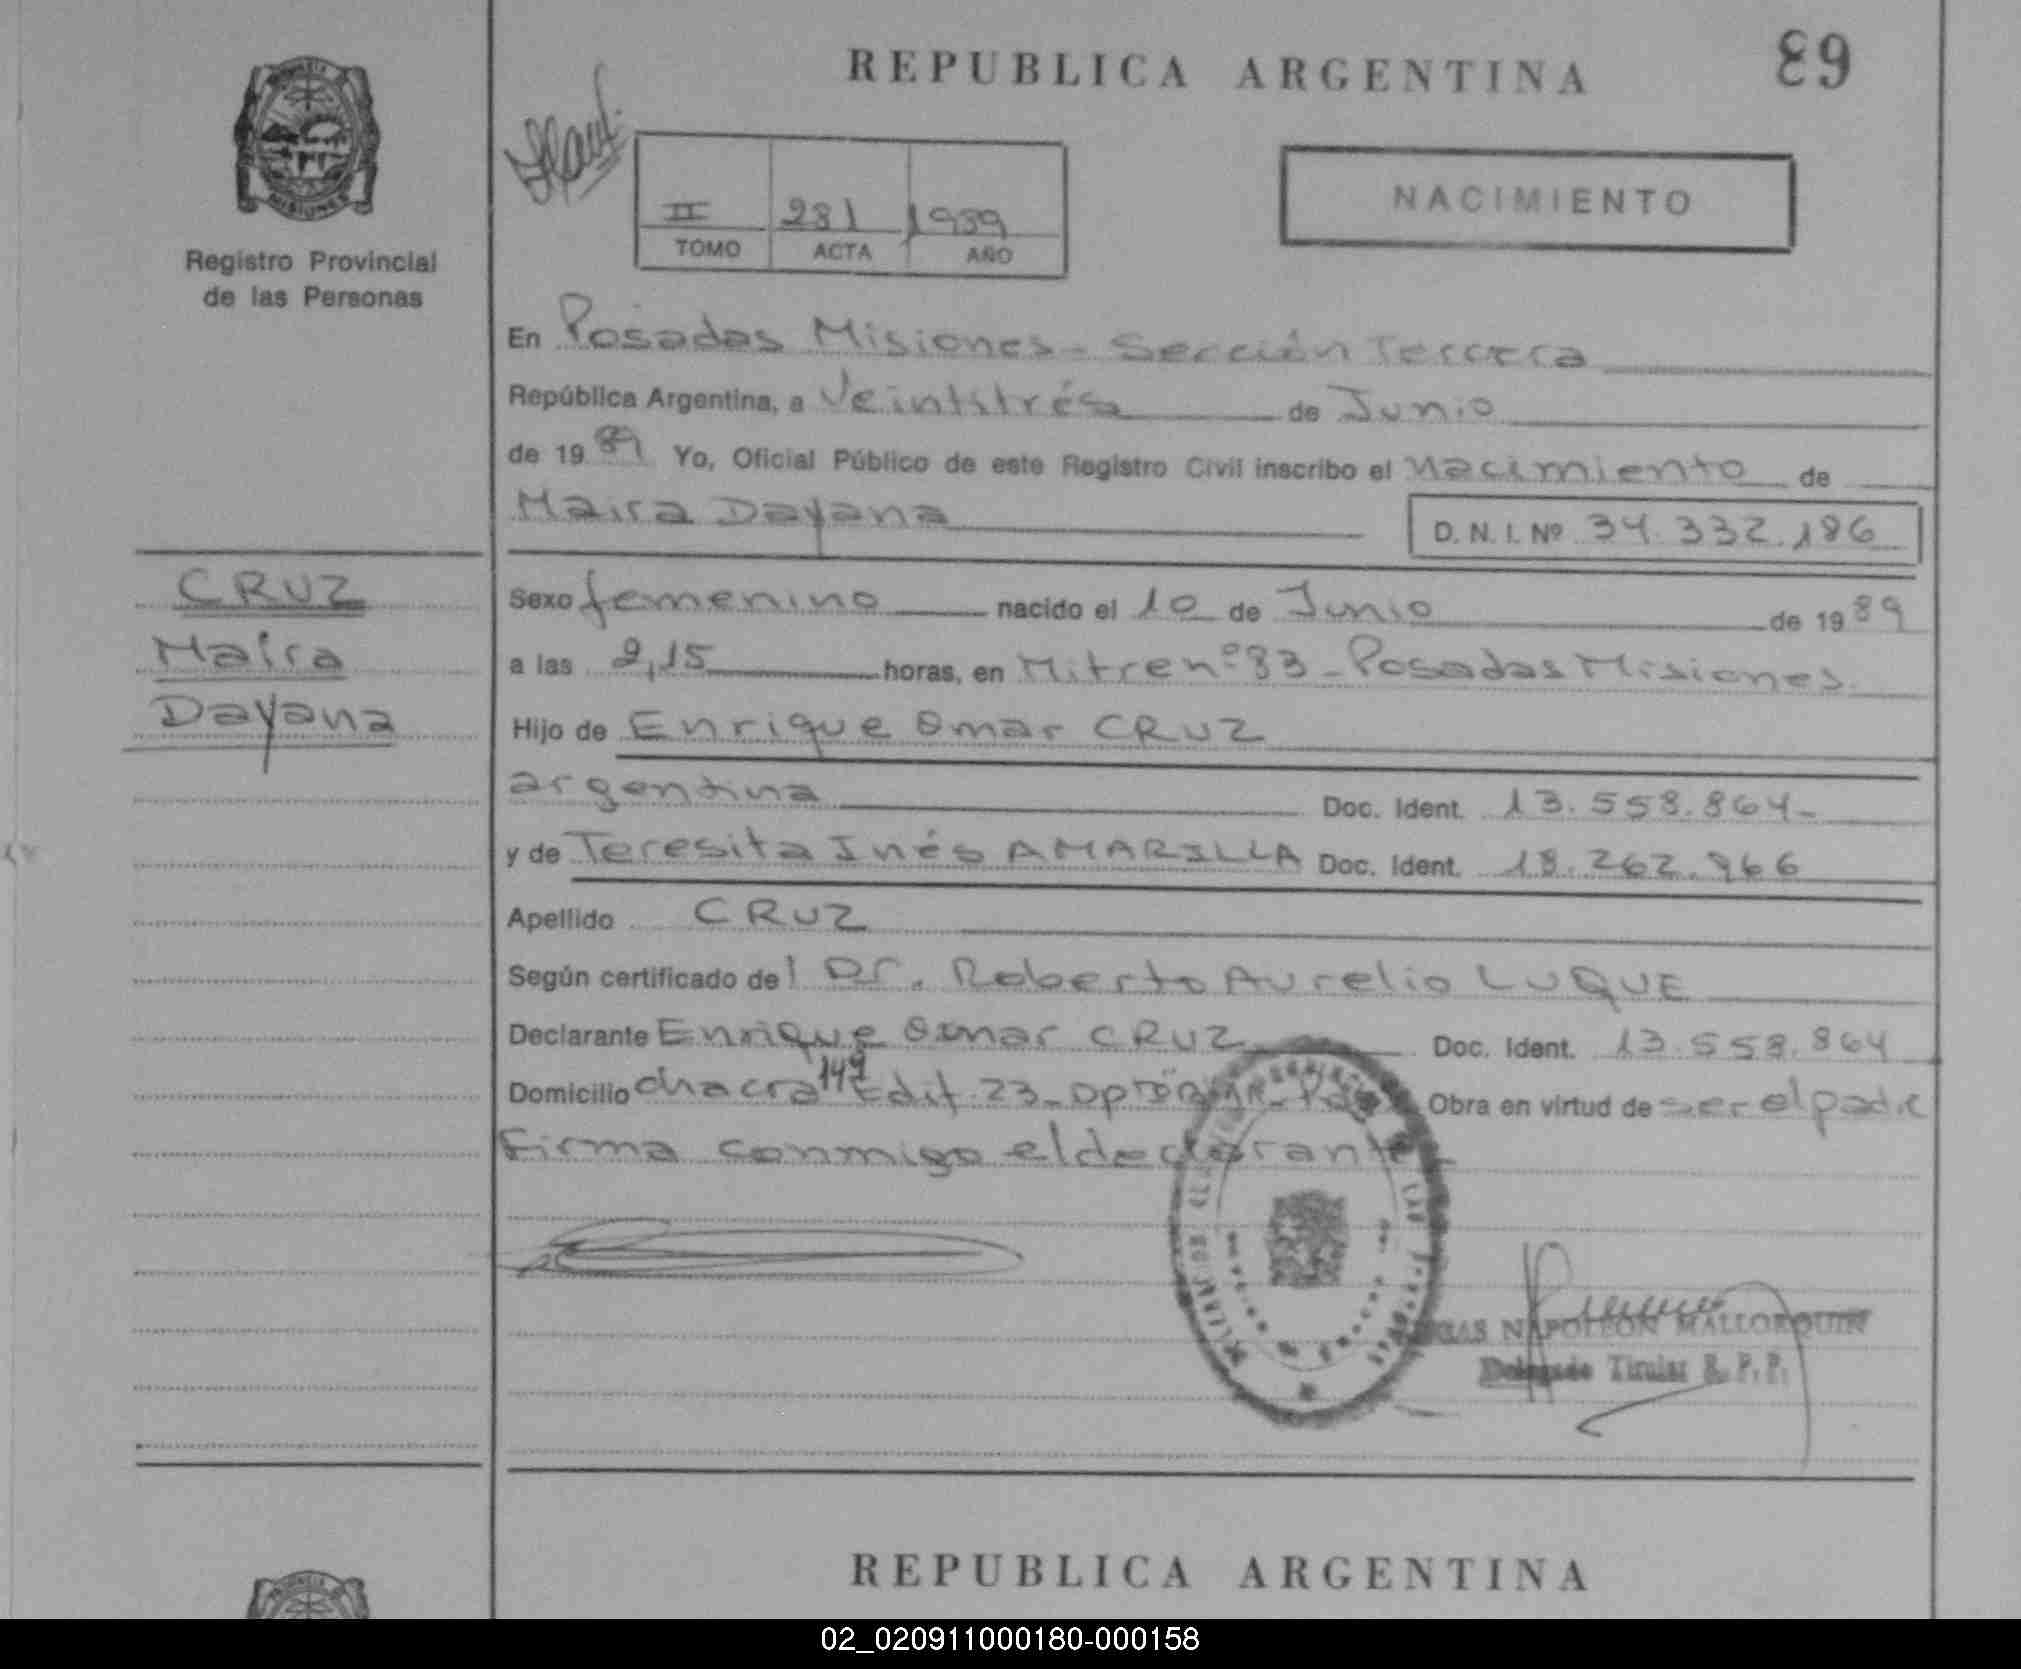 REPUBLICA ARGENTINA
MISIONES
Registro Provincial
de las Personas
II 281 1989
TOMO ACTA AÑO
NACIMIENTO
En Posadas Misiones - Sección Tercera
República Argentina, a Veintitrés de Junio
de 19 89 Yo, Oficial Público de este Registro Civil inscribo el Nacimiento de
Maira Dayana D. N. I. Nº 34.332.186
CRUZ
Maira
Dayana
Sexo femenino nacido el 10 de Junio de 19 89
a las 2,15 horas, en Mitre nº 83 - Posadas Misiones.
Hijo de Enrique Omar CRUZ
argentina Doc. Ident. 13.558.864-
y de Teresita Inés AMARILLA Doc. Ident. 18.262.966
Apellido CRUZ
Según certificado del Dr. Roberto Aurelio LUQUE
Declarante Enrique Omar CRUZ Doc. Ident. 13.558.864
Domicilio chacra 149 Edif. 23- Obra en virtud de ser el padre
Firma conmigo el declarante-
NAPOLEON MALLORQUIN
Delegado Titular R. P. P.
REPUBLICA ARGENTINA
02_020911000180-000158